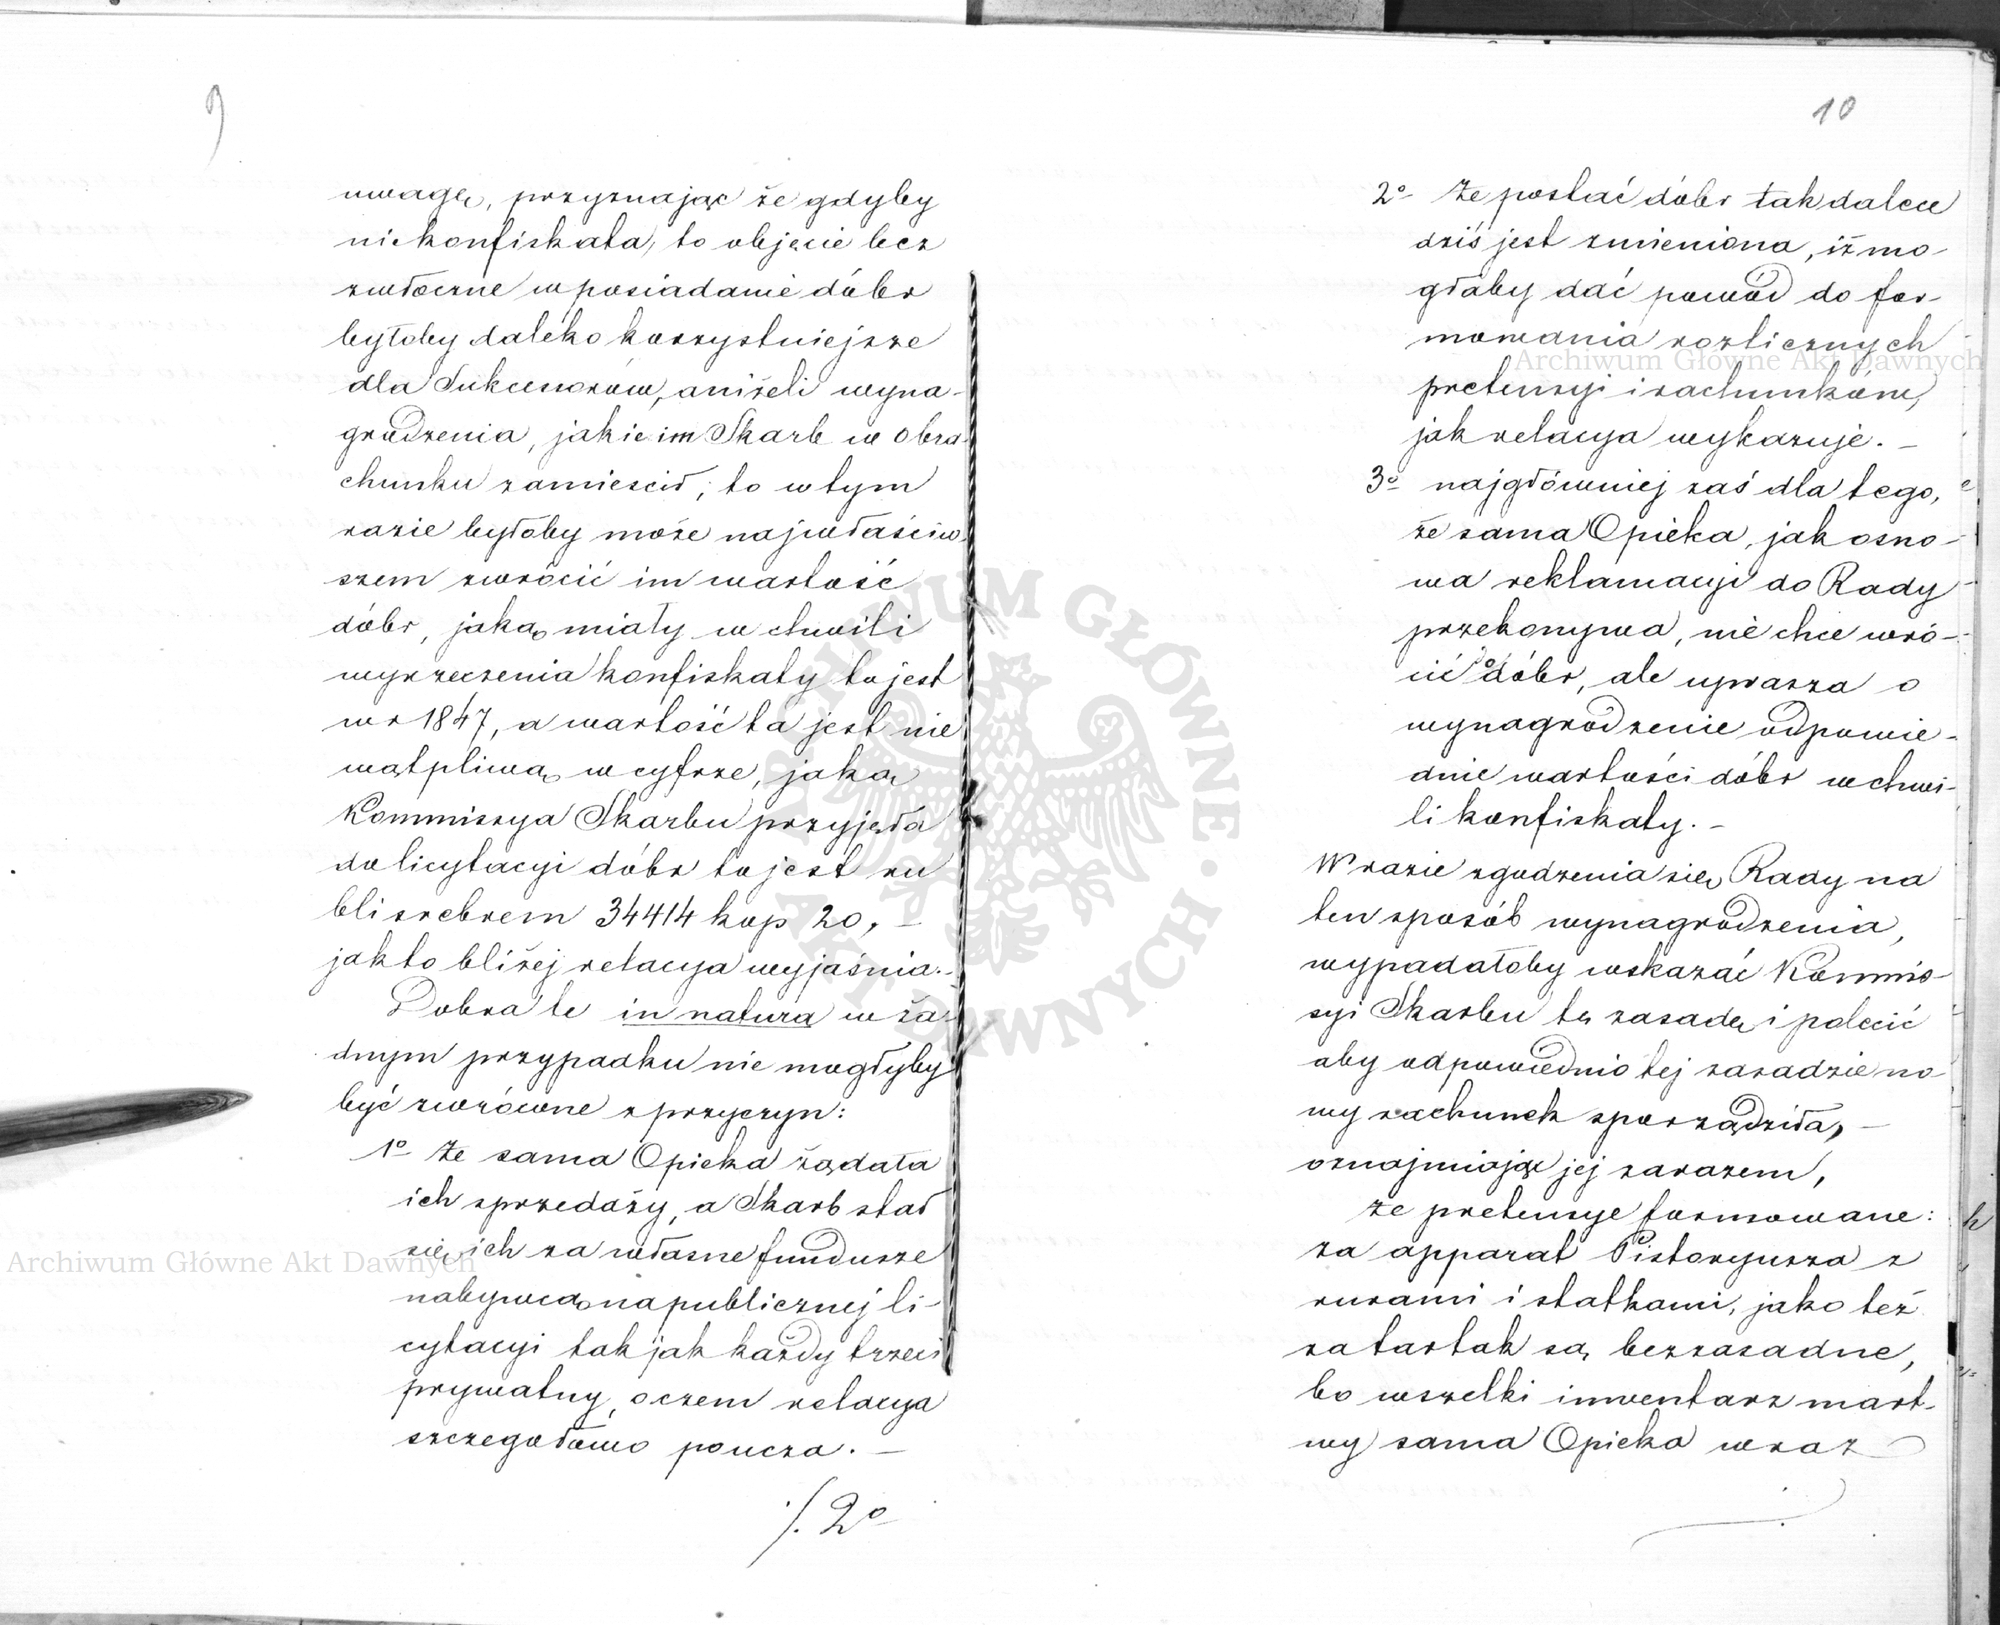 9
uwagę, przyznając że gdyby
nie konfiskata, to objęcie bez
zwłoczne w posiadanie dóbr
byłoby daleko korzystniejsze
dla Sukcessorów, aniżeli wyna-
grodzenia, jakie im Skarb w obra-
chunku zamieścił, to w tym
razie byłoby może najwłaściw-
szem zwrócić im wartość
dóbr, jaką miały w chwili
wyrzeczenia konfiskaty to jest
w r 1847, a wartość ta jest nie
wątpliwą w cyfrze, jaką
Kommissya Skarbu przyjęła
do licytacyi dóbr to jest ru
bli srebrem 34414 kop 20, –
jak to bliżej relacya wyjaśnia. –
Dobra te in natura w ża-
dnym przypadku nie mogłyby
być zwrócone z przyczyn:
1º Że sama Opieka żądała
ich sprzedaży, a Skarb stał
się ich za własne fundusze
nabywcą na publicznej li-
cytacyi tak jak każdy trzeci
prywatny, o czem relacya
szczegółowo poucza. –
/. 2º
10
2º Że postać dóbr tak dalece
dziś jest zmieniona, iż mo-
głaby dać powód do for-
mowania rozlicznych
pretensyi i rachunków,
jak relacya wykazuje. –
3º najgłówniej zaś dla tego,
że sama Opieka, jak osno-
wa reklamacyi do Rady
przekonywa, nie chce wró-
cić do dóbr, ale uprasza o
wynagrodzenie odpowie-
dnie wartości dóbr w chwi-
li konfiskaty. –
W razie zgodzenia się Rady na
ten sposób wynagrodzenia,
wypadałoby wskazać Kommis-
syi Skarbu tę zasadę i polecić
aby odpowiednio tej zasadzie no
wy rachunek sporządziła, –
oznajmiając jej zarazem,
że pretensye formowane:
za apparat Pistoryusza z
rurami i statkami, jako też
za tartak są bezzasadne,
bo wszelki inwentarz mart-
wy sama Opieka wraz
Archiwum Główne Akt Dawnych
Archiwum Główne Akt Dawnych
ARCHIWUM GŁÓWNE AKT DAWNYCH